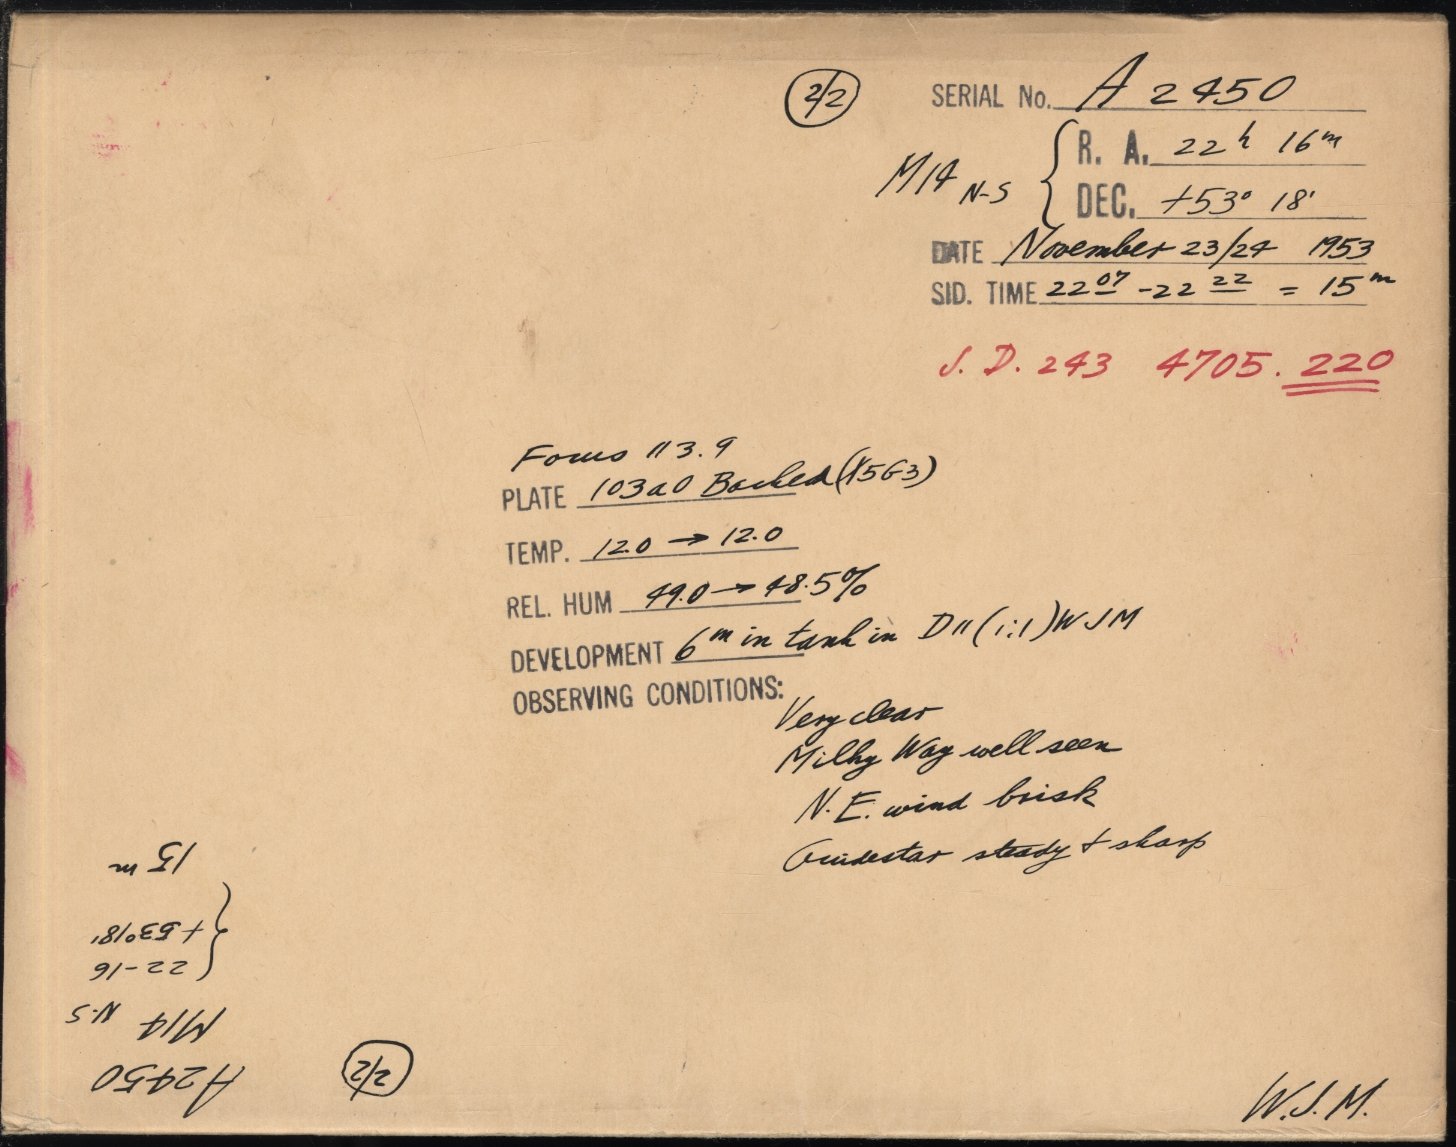 2/2
SERIAL No. A 2450
M14 N-S
R. A. 22h 16m
DEC. +53° 18'
DATE November 23/24 1953
SID. TIME 22 07 - 22 22 = 15m
J. D. 243 4705.220
Focus 113.9
PLATE 103a0 Backed (15G3)
TEMP. 12.0 → 12.0
REL. HUM 49.0 → 48.5%
DEVELOPMENT 6m in tank in D11 (1:1) WJM
OBSERVING CONDITIONS:
Very clear
Milky Way well seen
N.E. wind brisk
Guidestar steady + sharp
A2450
M14 N-S
22-16
+53°18'
15 m
2/2
W.J.M.